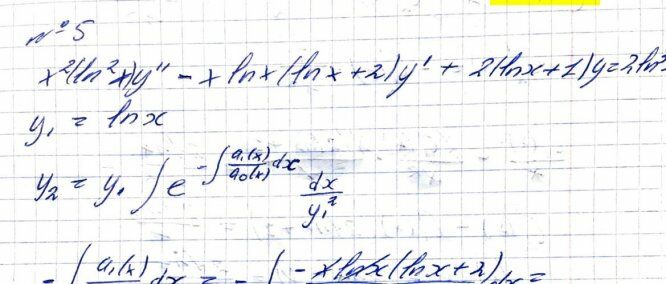 № 5
x²(ln²x)y'' - x ln x (ln x + 2) y' + 2(ln x + 1) y = 2 ln³
y₁ = ln x
y₂ = y₁ ∫ e^{-∫ a₁(x)/a₀(x) dx} dx/y₁²
- ∫ a₁(x) dx = - ∫ -x ln x (ln x + 2) dx =